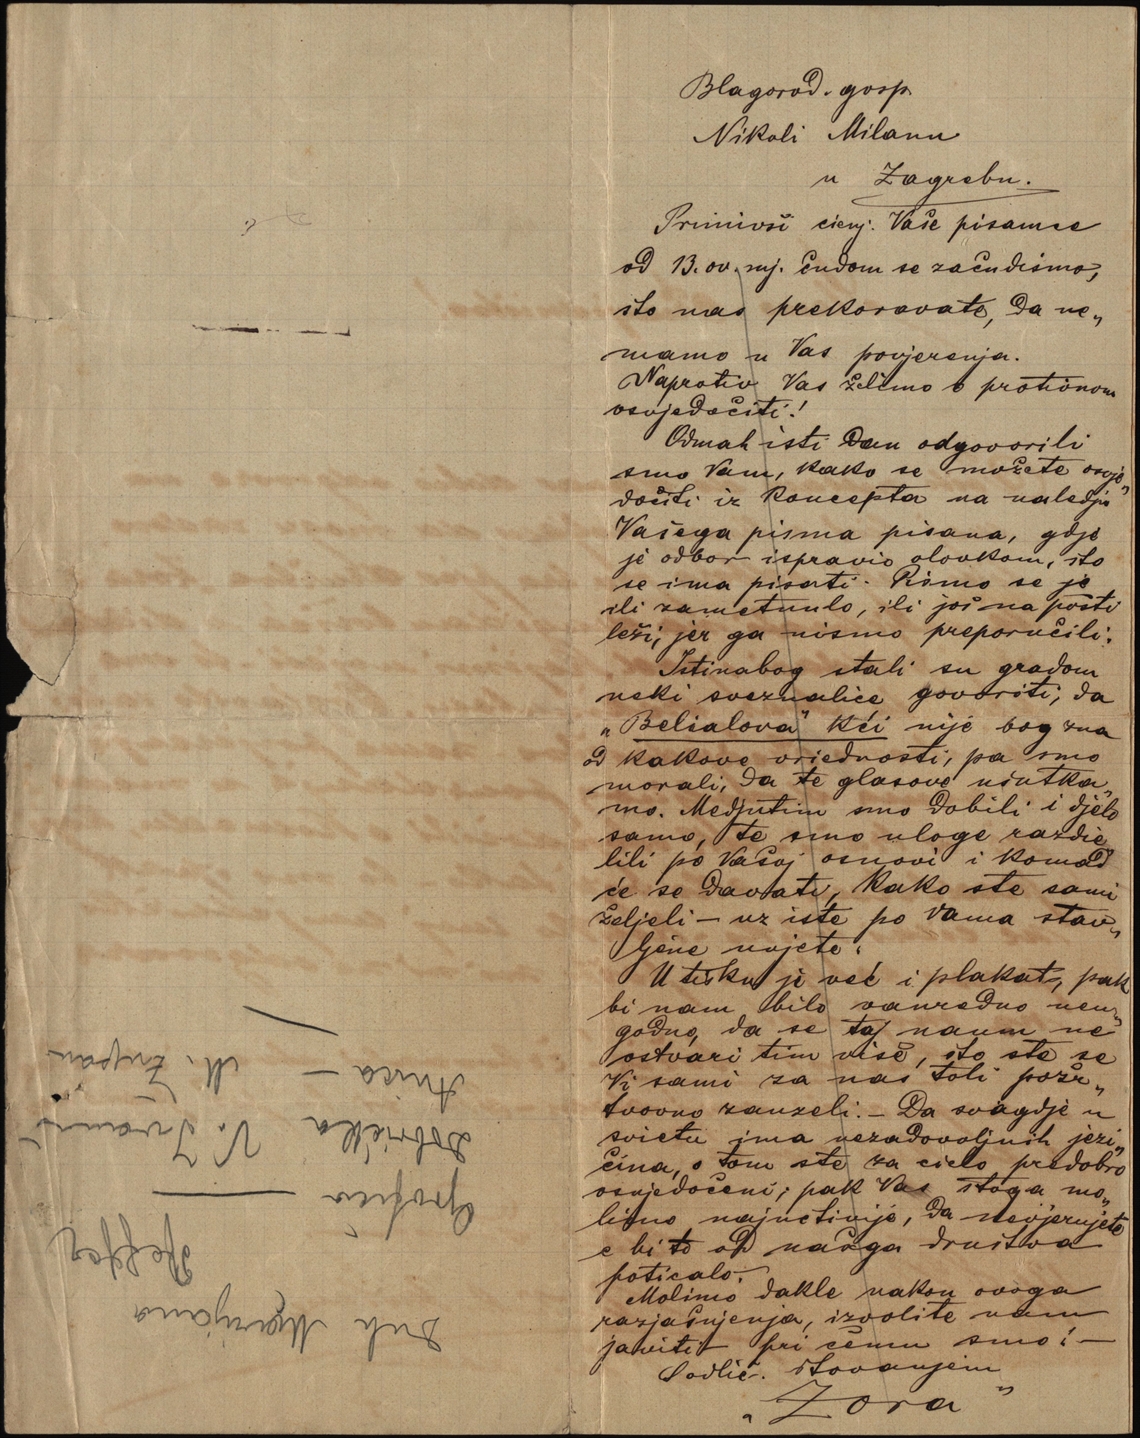 Blagorod. gosp.
Nikoli Milanu
u Zagrebu.
Primivši cienj. Vaše pisamce
od 13. ov. mj. čudom se začudismo,
što nas prekoravate, da ne„
mamo u Vas povjerenja.
Naprotiv Vas želimo o protivnom
osvjedočiti!
Odmah isti dan odgovorili
smo Vam, kako se možete osvje„
dočiti iz koncepta na naledju
Vašega pisma pisana, gdje
je odbor ispravio olovkom, što
se ima pisati. Pismo se je
ili zametnulo, ili još na pošti
leži, jer ga nismo preporučili.
Istinabog stali su gradom
neki sveznalice govoriti, da
„Belialova" kći nije bog zna
od kakove vriednosti, pa smo
morali, da te glasove ušutka„
mo. Medjutim smo dobili i djelo
samo, te smo uloge razdie„
lili po Vašoj osnovi i komad
će se davati, kako ste sami
željeli – uz iste po Vama stav„
ljene uvjete.
U tisku je već i plakat, pak
bi nam bilo vanredno neu„
godno, da se taj naum ne
ostvari tim više, što ste se
Vi sami za nas toli požr„
tvovno zauzeli. – Da svagdje u
svietu ima nezadovoljnih jezi„
čina, o tom ste za cielo predobro
osvjedočeni; pak Vas stoga mo„
limo najučtivije, da nevjerujete
e bi to od našega društva
poticalo.
Molimo dakle nakon ovoga
razjašnjenja, izvolite nam
javiti – pri čemu smo! –
Sodlič. štovanjem
„Zora"
Duh Marijana
Grofica —
Dobrička V. Ivanić
Anica — M. Župan